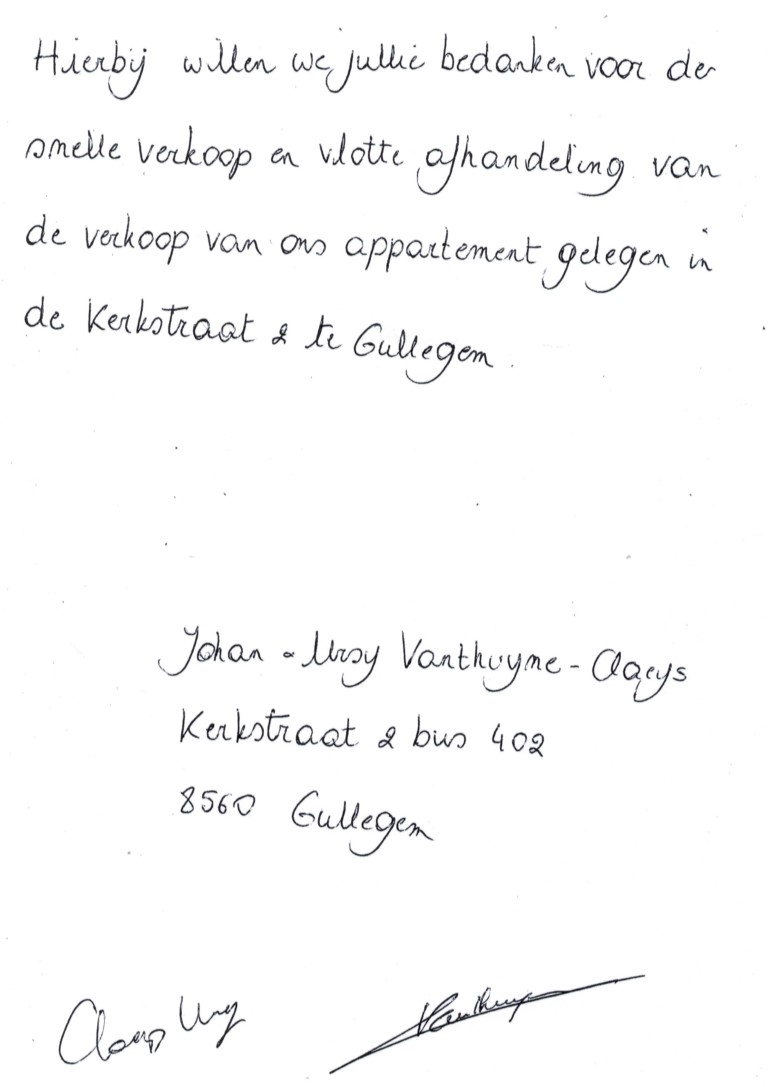 Hierbij willen we jullie bedanken voor de
snelle verkoop en vlotte afhandeling van
de verkoop van ons appartement gelegen in
de Kerkstraat 2 te Gullegem.
Johan - Vanthuyne - Claeys
Kerkstraat 2 bus 402
8560 Gullegem